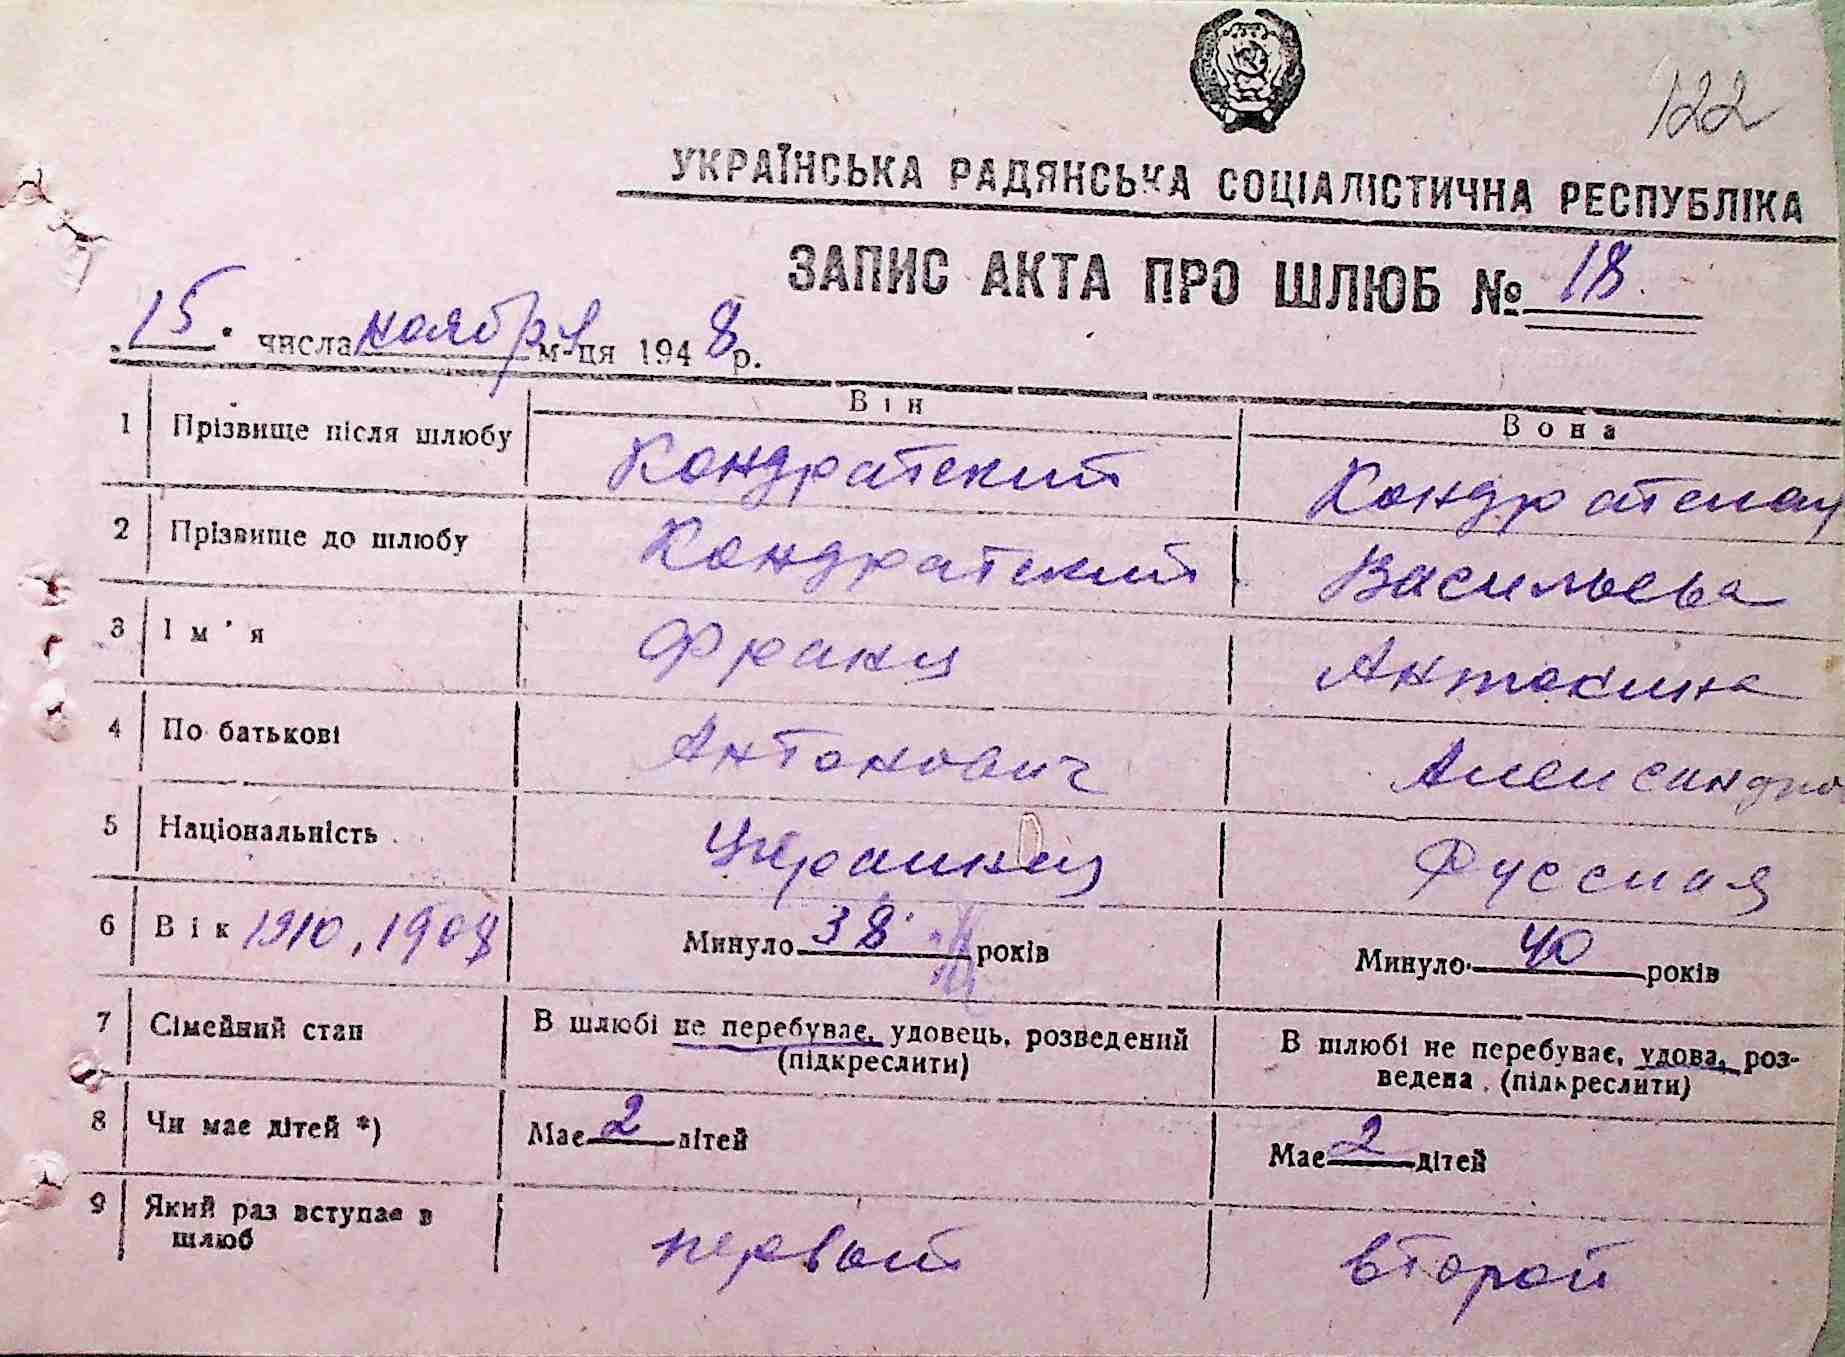 122
УКРАЇНСЬКА РАДЯНСЬКА СОЦІАЛІСТИЧНА РЕСПУБЛІКА
ЗАПИС АКТА ПРО ШЛЮБ № 18
„15" числа ноября м-ця 1948 р.
Він Вона
1 Прізвище після шлюбу Кондратский Кондратская
2 Прізвище до шлюбу Кондратский Васильева
3 Ім'я Франц Антонина
4 По батькові Антонович Александро
5 Національність Украинец Русская
6 Вік 1910, 1908 Минуло 38 років Минуло 40 років
7 Сімейний стан В шлюбі не перебуває, удовець, розведений В шлюбі не перебуває, удова, роз-
(підкреслити) ведена. (підкреслити)
8 Чи має дітей *) Має 2 дітей Має 2 дітей
9 Який раз вступає в первый второй
шлюб